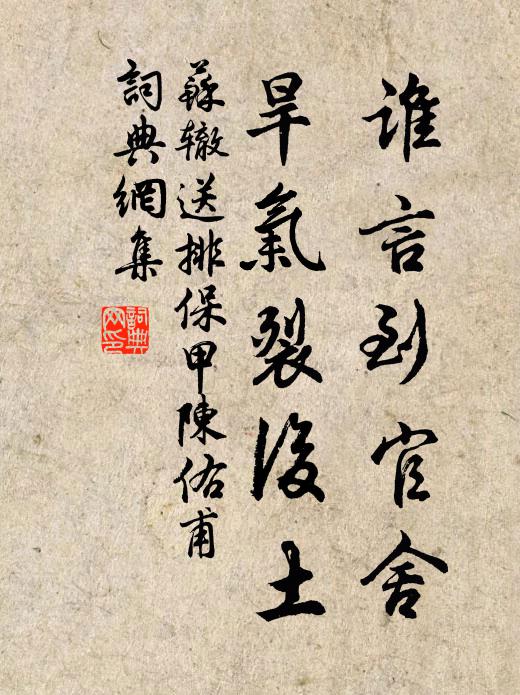 誰言到官舍
旱氣裂後土
蘇轍送排保甲陳佑甫
詞典網集
詞典
网印